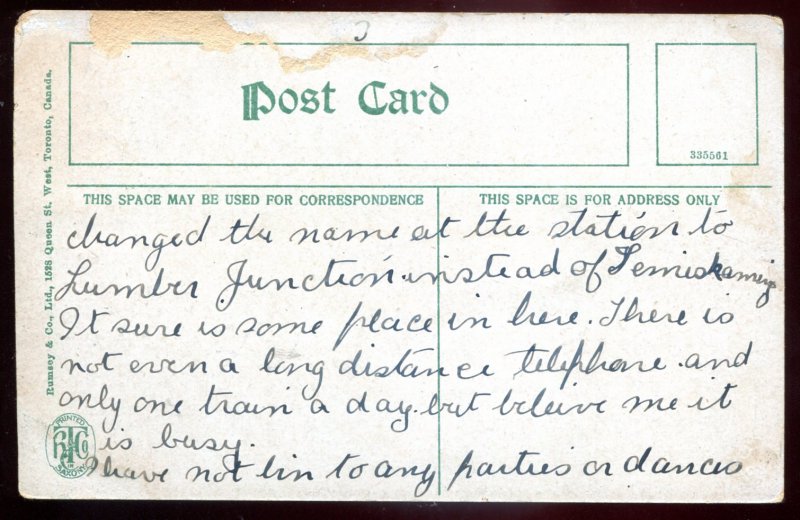 Post Card
335561
Rumsey & Co., Ltd., 1528 Queen St. West, Toronto, Canada.
THIS SPACE MAY BE USED FOR CORRESPONDENCE
THIS SPACE IS FOR ADDRESS ONLY
changed the name at the station to
Lumber Junction instead of Temiskaming
It sure is some place in here. There is
not even a long distance telephone and
only one train a day but beleive me it
is busy.
I have not bin to any parties or dances
PRINTED
IN
SAXONY